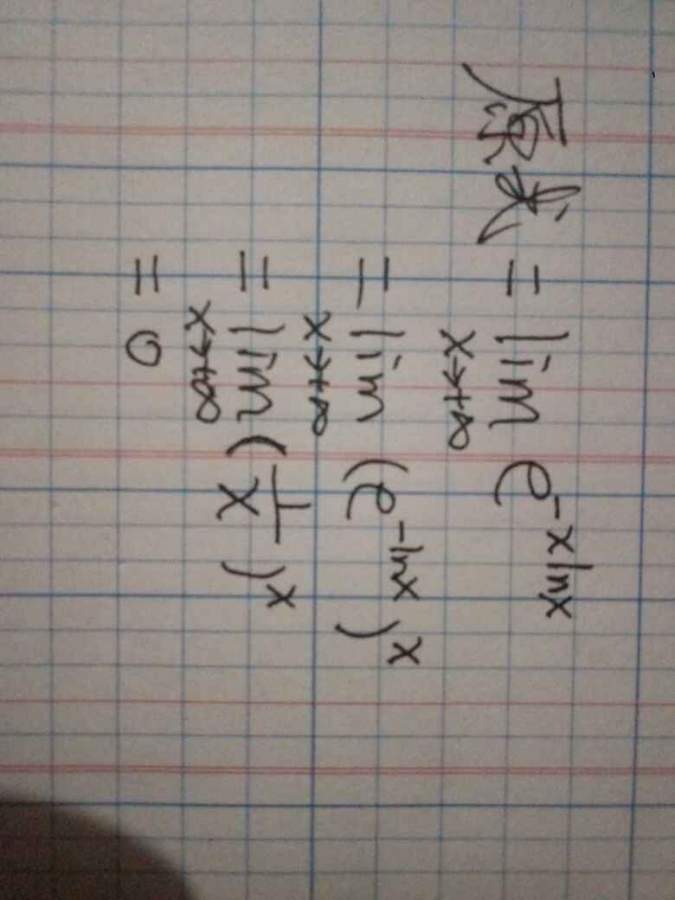 原式 = lim x→+∞ e^{-xlnx}
= lim x→+∞ (e^{-lnx})^x
= lim x→+∞ (1/x)^x
= 0